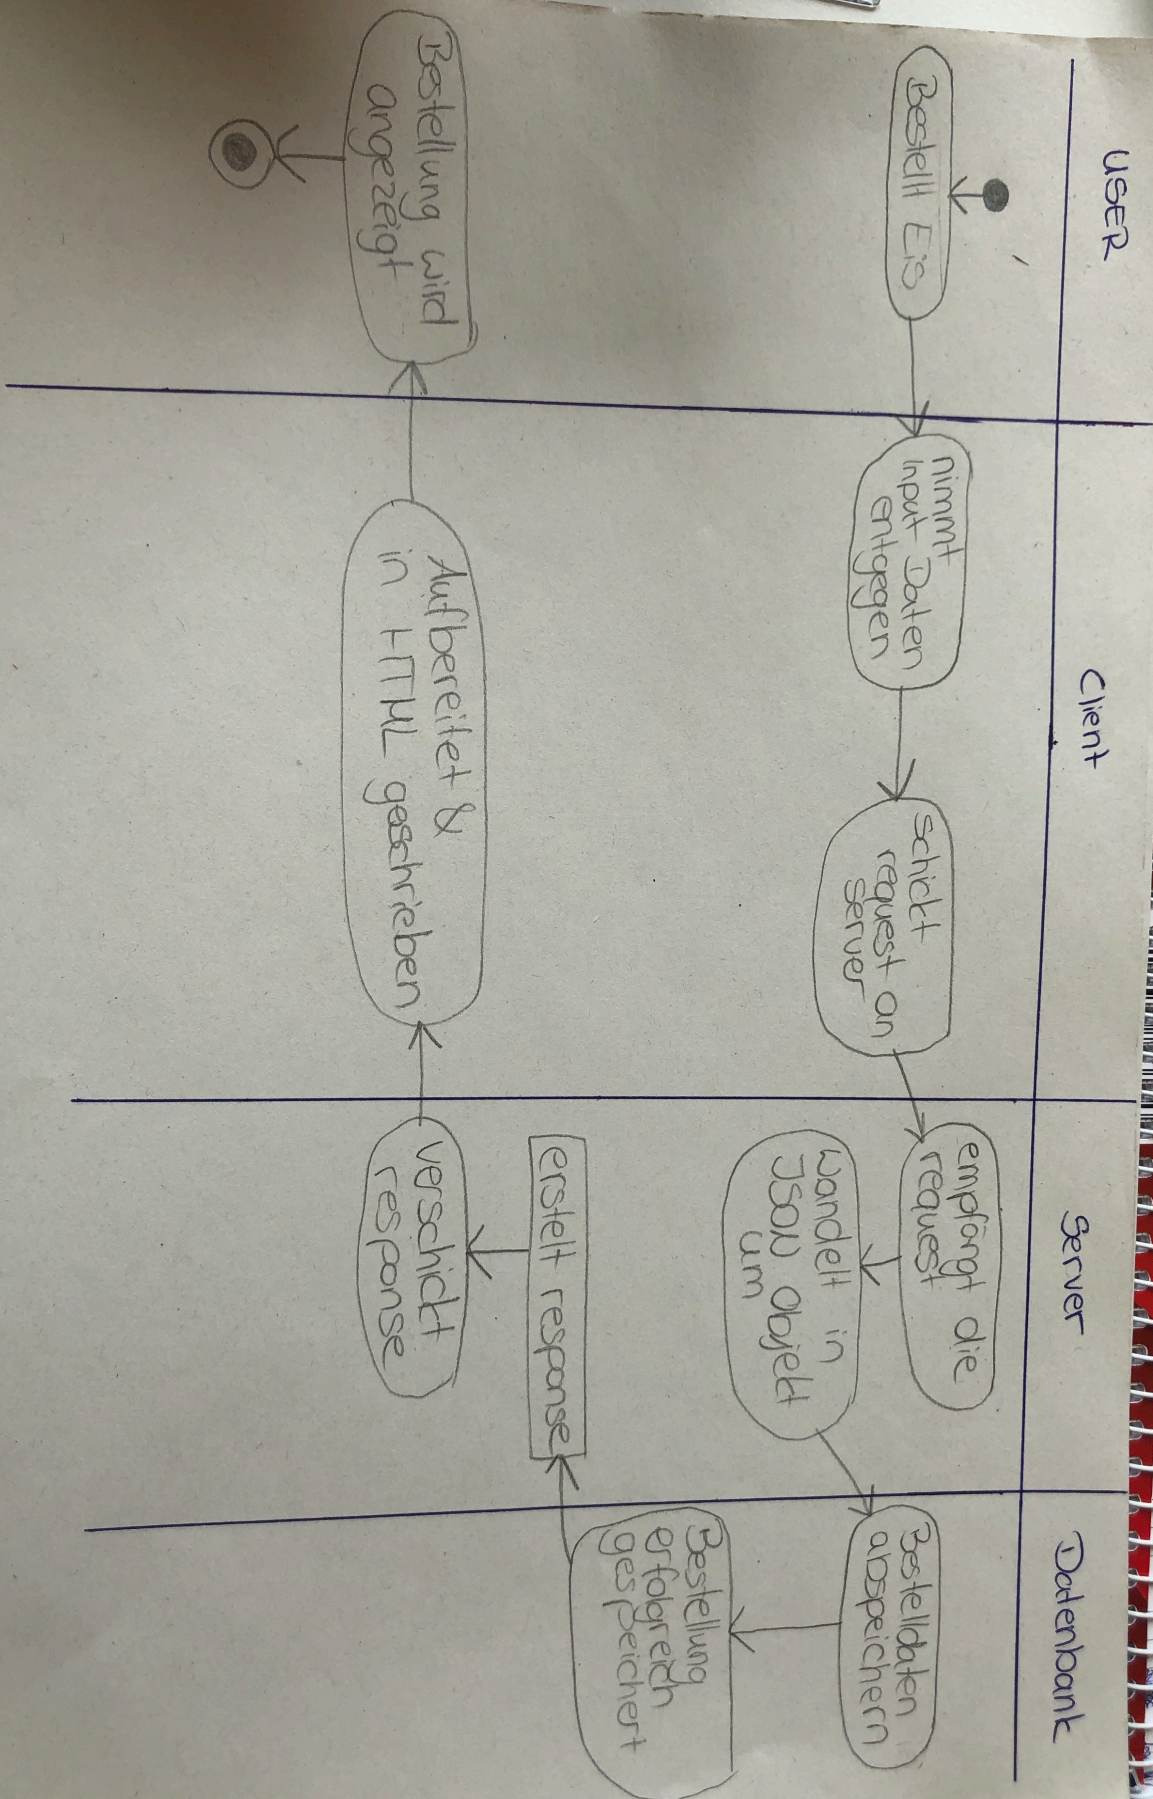 USER
Client
Server
Datenbank
Bestellt Eis
nimmt
Input Daten
entgegen
schickt
request an
server
empfängt die
request
wandelt in
JSON Objekt
um
Bestelldaten
abspeichern
Bestellung
erfolgreich
gespeichert
erstelt response
verschickt
response
Aufbereitet &
in HTML geschrieben
Bestellung wird
angezeigt